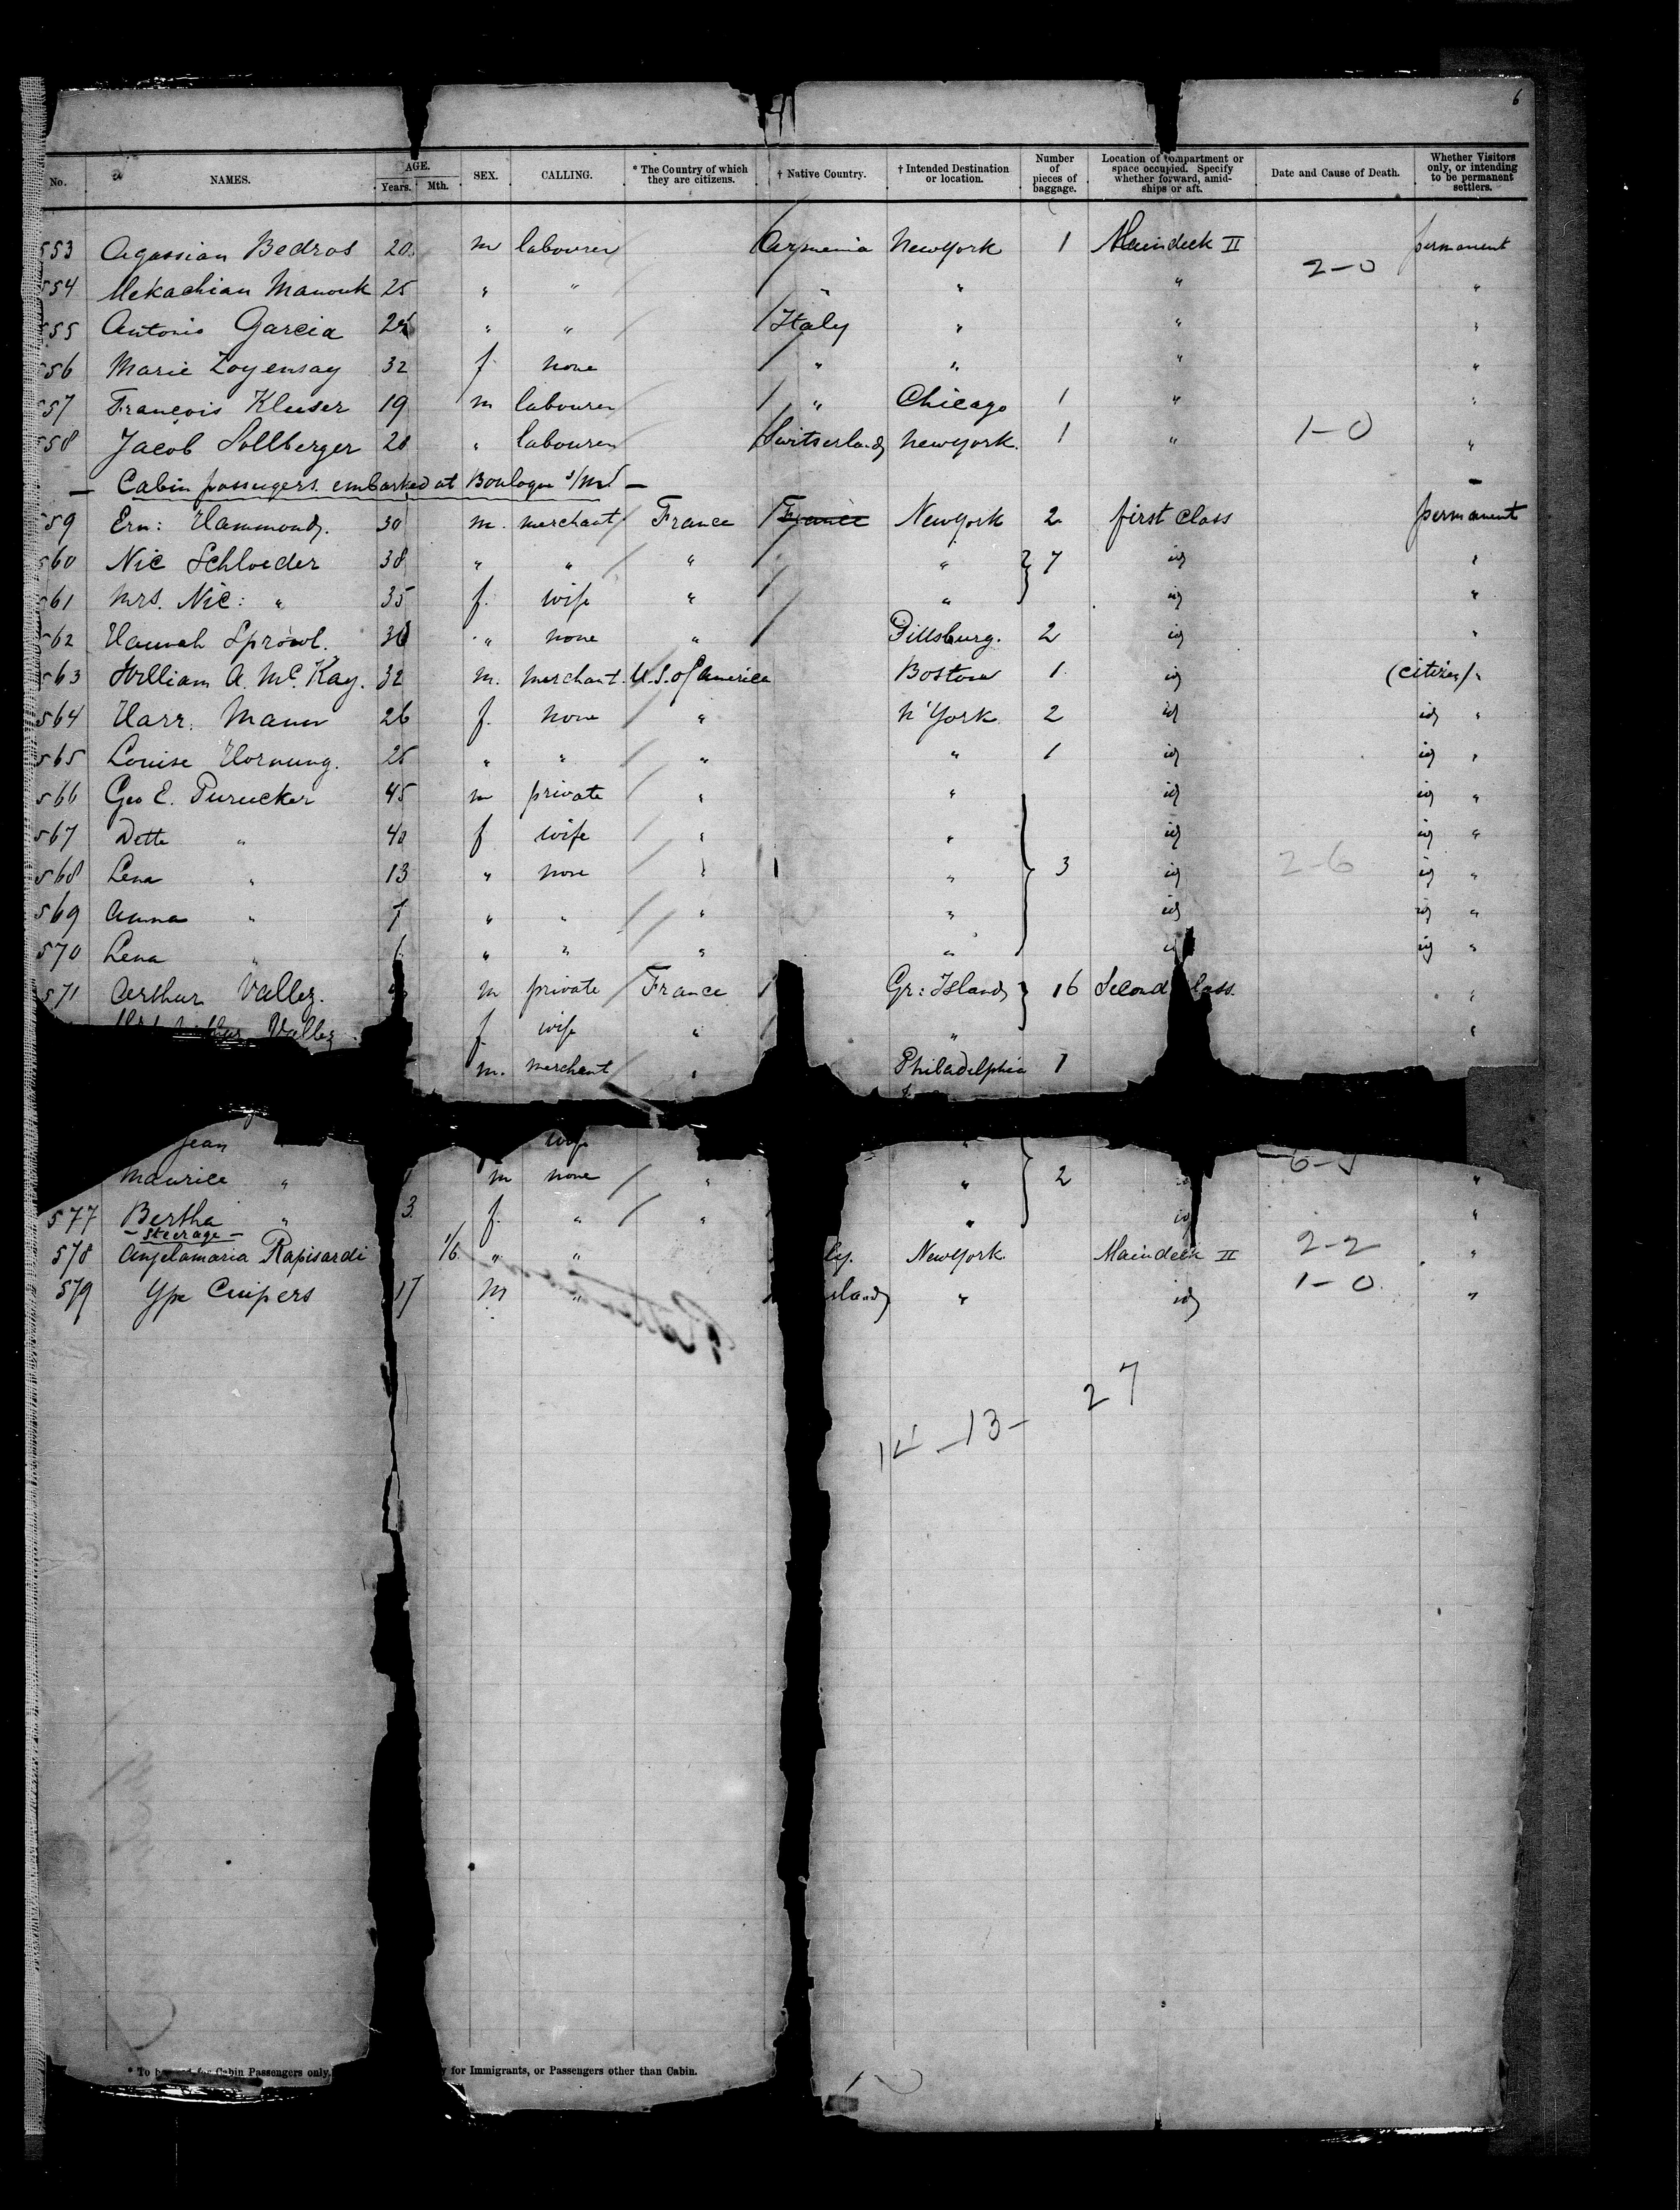 6
No. NAMES. AGE. Years. Mth. SEX. CALLING. * The Country of which they are citizens. † Native Country. † Intended Destination or location. Number of pieces of baggage. Location of compartment or space occupied. Specify whether forward, amid-ships or aft. Date and Cause of Death. Whether Visitors only, or intending to be permanent settlers.
553 Agassian Bedros 20 m labourer Armenia New York 1 Maindeck II permanent
2-0
554 Mekachian Manouk 25 " " " " " "
555 Antonio Garcia " " Italy " " "
556 Marie Zoyensay 32 f none " " " "
557 François Kleuser 19 m labourer " Chicago 1 " "
558 Jacob Sollberger 20 " labourer Switserland New York. 1 " 1-0 "
— Cabin passengers embarked at Boulogne s/m —
559 Ern: Hammond. 30 m. merchant France France New York 2 first class permanent
560 Nic Schloeder 38 " " " " 7 id "
561 Mrs. Nic: " 35 f. wife " " id "
562 Hannah Sprowl. " none " Pittsburg. 2 id "
563 William A. Mc. Kay. 32 m. merchant. U.S. of America Boston 1 id (citizen) "
564 Harr. Mann 26 f. none " N'York 2 id id "
565 Louise Hornung. 25 " " " " 1 id id "
566 Geo E. Purucker 45 m private " " id id "
567 Dette " 40 f wife " " id id "
568 Lena " 13 " none " " 3 id 2-6 id "
569 Anna " 7 " " " " id id "
570 Lena " 6 " " " " id id "
571 Arthur Vallez. m private France Gr: Island 16 Second class. "
Vallez f. wife " " "
m. merchant " Philadelphia 1
Jean wife "
Maurice " m none " " 2 "
577 Bertha " 3 f. " " " id "
— Steerage —
578 Angelamaria Rapisardi 1/6 " " ly. New York Maindeck II 2-2 "
579 Ype Cuipers 17 m " land " id 1-0 "
27
14-13-
* To be for Cabin Passengers only. y for Immigrants, or Passengers other than Cabin.